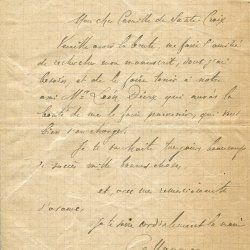 Mon cher Camille de Sainte-Croix
Veuillez avoir la bonté, me faire l'amitié
de rechercher mon manuscrit, dont j'ai
besoin, et de le faire tenir à notre
ami Mr Léon Dierx qui aura la
bonté de me le faire parvenir, qui veut
bien s'en charger.
Je te souhaite toujours beaucoup
de succès mille bonnes choses,
et avec mes remerciements
d'avance,
je te serre cordialement la main